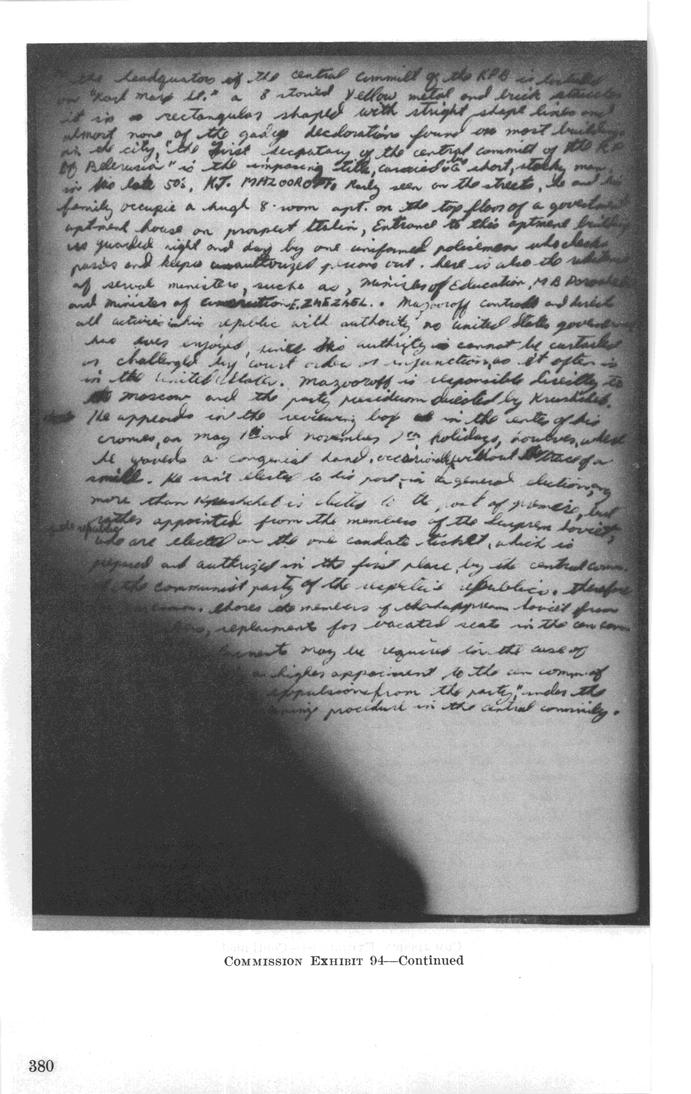 the headquators of the central committ of the KPB is located
on "Karl Marx St." a 8 storied yellow metal and brick structure
it is a rectangular shaped with stright shape lines and
almost none of the gaudy declorations found on most buildings
in the city, "the First secratary of the central committ of the KP
of Belerussia" is the imposing title, carried by a short, stocky man
in his late 50's, K.T. MAZOOROFF, Rarly seen on the streets, he and his
family occupie a hugh 8 room apt. on the top floor of a goverment
aptment house on prospect Stalin, Entrance to this aptment building
is guarded night and day by one uniformed policemen who checks
passes and keeps unauthorized persons out. here is also the
of serval ministers, suche as, Minister of Education, M B
and minister of E. ZHEZHEL. Mazooroff controls and
all activies in his republic with authority no united States goverment
has ever enjoyed, since his authrity cannot be
or challenged by court order or injunction, as it often is
in the United States. Mazooroff is responsible directly to
Moscow and the party presidium directed by
He appears in the reviewing box in the center of his
cronies, on May 1st and november 7th holidays, novelives, where
he waves a congenial hand, without trace of a
smile. He isn't elected to his post, in a general election, any
more than is elected to the post of, but
rather appointed from the members of the Surprem Soviet,
who are elected on the one candate ticket, which is
prepared and authrized in the first place, by the central comm.
of the communist party of the republics. therefore
comm. choses the members of the Suppream Soviet from
replaiment for vacated seats in the cen comm
may be required in the case of
a higher appoiment to the cen comm of
expulsions from the party," under the
procedure in the central
COMMISSION EXHIBIT 94—Continued
380